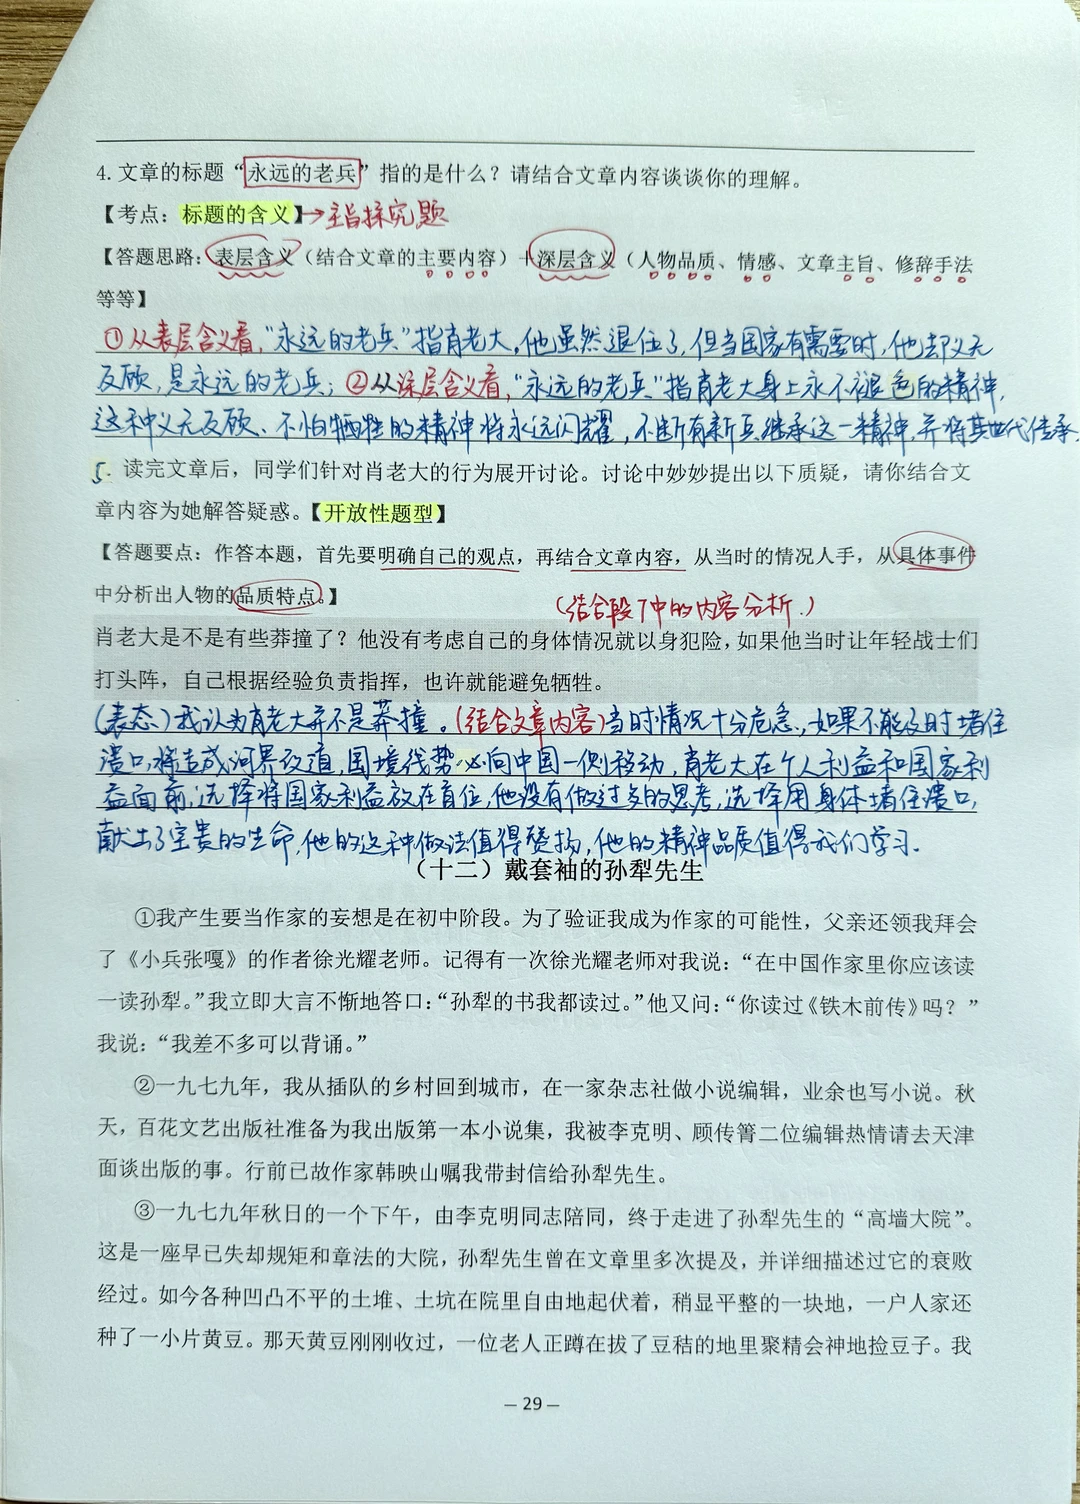 4. 文章的标题“永远的老兵”指的是什么？请结合文章内容谈谈你的理解。
【考点：标题的含义】→主旨探究题
【答题思路：表层含义（结合文章的主要内容）＋深层含义（人物品质、情感、文章主旨、修辞手法
等等】
①从表层含义看，“永远的老兵”指肖老大。他虽然退伍了，但当国家有需要时，他却义无
反顾，是永远的老兵；②从深层含义看，“永远的老兵”指肖老大身上永不褪色的精神，
这种义无反顾、不怕牺牲的精神将永远闪耀，不断有新兵继承这一精神，并将其世代传承。
5. 读完文章后，同学们针对肖老大的行为展开讨论。讨论中妙妙提出以下质疑，请你结合文
章内容为她解答疑惑。【开放性题型】
【答题要点：作答本题，首先要明确自己的观点，再结合文章内容，从当时的情况人手，从具体事件
中分析出人物的品质特点。】
（结合段7中的内容分析.）
肖老大是不是有些莽撞了？他没有考虑自己的身体情况就以身犯险，如果他当时让年轻战士们
打头阵，自己根据经验负责指挥，也许就能避免牺牲。
（表态）我认为肖老大并不是莽撞。（结合文章内容）当时情况十分危急，如果不能及时堵住
溃口，将造成河界改道，国境线势必向中国一侧移动，肖老大在个人利益和国家利
益面前，选择将国家利益放在首位，他没有做过多的思考，选择用身体堵住溃口，
献出了宝贵的生命，他的这种做法值得赞扬，他的精神品质值得我们学习.
（十二）戴套袖的孙犁先生
①我产生要当作家的妄想是在初中阶段。为了验证我成为作家的可能性，父亲还领我拜会
了《小兵张嘎》的作者徐光耀老师。记得有一次徐光耀老师对我说：“在中国作家里你应该读
一读孙犁。”我立即大言不惭地答口：“孙犁的书我都读过。”他又问：“你读过《铁木前传》吗？”
我说：“我差不多可以背诵。”
②一九七九年，我从插队的乡村回到城市，在一家杂志社做小说编辑，业余也写小说。秋
天，百花文艺出版社准备为我出版第一本小说集，我被李克明、顾传箐二位编辑热情请去天津
面谈出版的事。行前已故作家韩映山嘱我带封信给孙犁先生。
③一九七九年秋日的一个下午，由李克明同志陪同，终于走进了孙犁先生的“高墙大院”。
这是一座早已失却规矩和章法的大院，孙犁先生曾在文章里多次提及，并详细描述过它的衰败
经过。如今各种凹凸不平的土堆、土坑在院里自由地起伏着，稍显平整的一块地，一户人家还
种了一小片黄豆。那天黄豆刚刚收过，一位老人正蹲在拔了豆秸的地里聚精会神地捡豆子。我
— 29 —